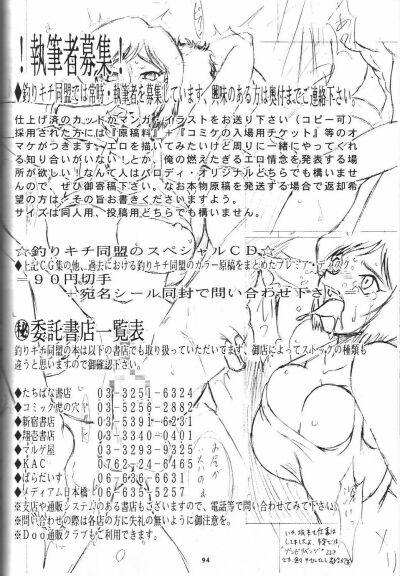 ！執筆者募集！
◆釣りキチ同盟では常時・執筆者を募集しています、興味のある方は奥付までご連絡下さい。
仕上げ済のカットかマンガ、イラストをお送り下さい（コピー可）
採用された方には『原稿料』＋『コミケの入場用チケット』等のオ
マケがつきます。エロを描いてみたいけど周りに一緒にやってくれ
る知り合いがいない！とか、俺の燃えたぎるエロ情念を発表する場
所が欲しい！なんて人はパロディ・オリジナルどちらでも構いませ
んので、ぜひ御寄稿下さい。なお本物原稿を発送する場合で返却希
望の方は、その旨お書きくださいますよう。
サイズは同人用、投稿用どちらでも構いません。
☆釣りキチ同盟のスペシャルＣＤ☆
◆上記ＣＧ集の他、過去における釣りキチ同盟のカラー原稿をまとめたプレミア・ディスク。
＝９０円切手
＝宛名シール同封で問い合わせ下さい＝
㊙委託書店一覧表
釣りキチ同盟の本は以下の書店でも取り扱っていただいてます、御店によってストックの種類も
違うと思いますので御確認下さい。
◆たちばな書店 03-3251-6324
◆コミック虎の穴 03-5256-2882
◆新宿書店 03-5391-6231
◆翔壱書店 03-3340-0401
◆マルゲ屋 03-3293-9325
◆KAC 0762-24-6465
◆ぱらだいす 06-636-6631
◆メディアム日本橋 06-635-5257
※支店や通販システムのある書店もございますので、電話等で問い合わせてみて下さい。
※問い合わせの際は各店の方に失礼の無いように御注意を。
※Ｄｏｏ通販クラブもご利用できます。
94